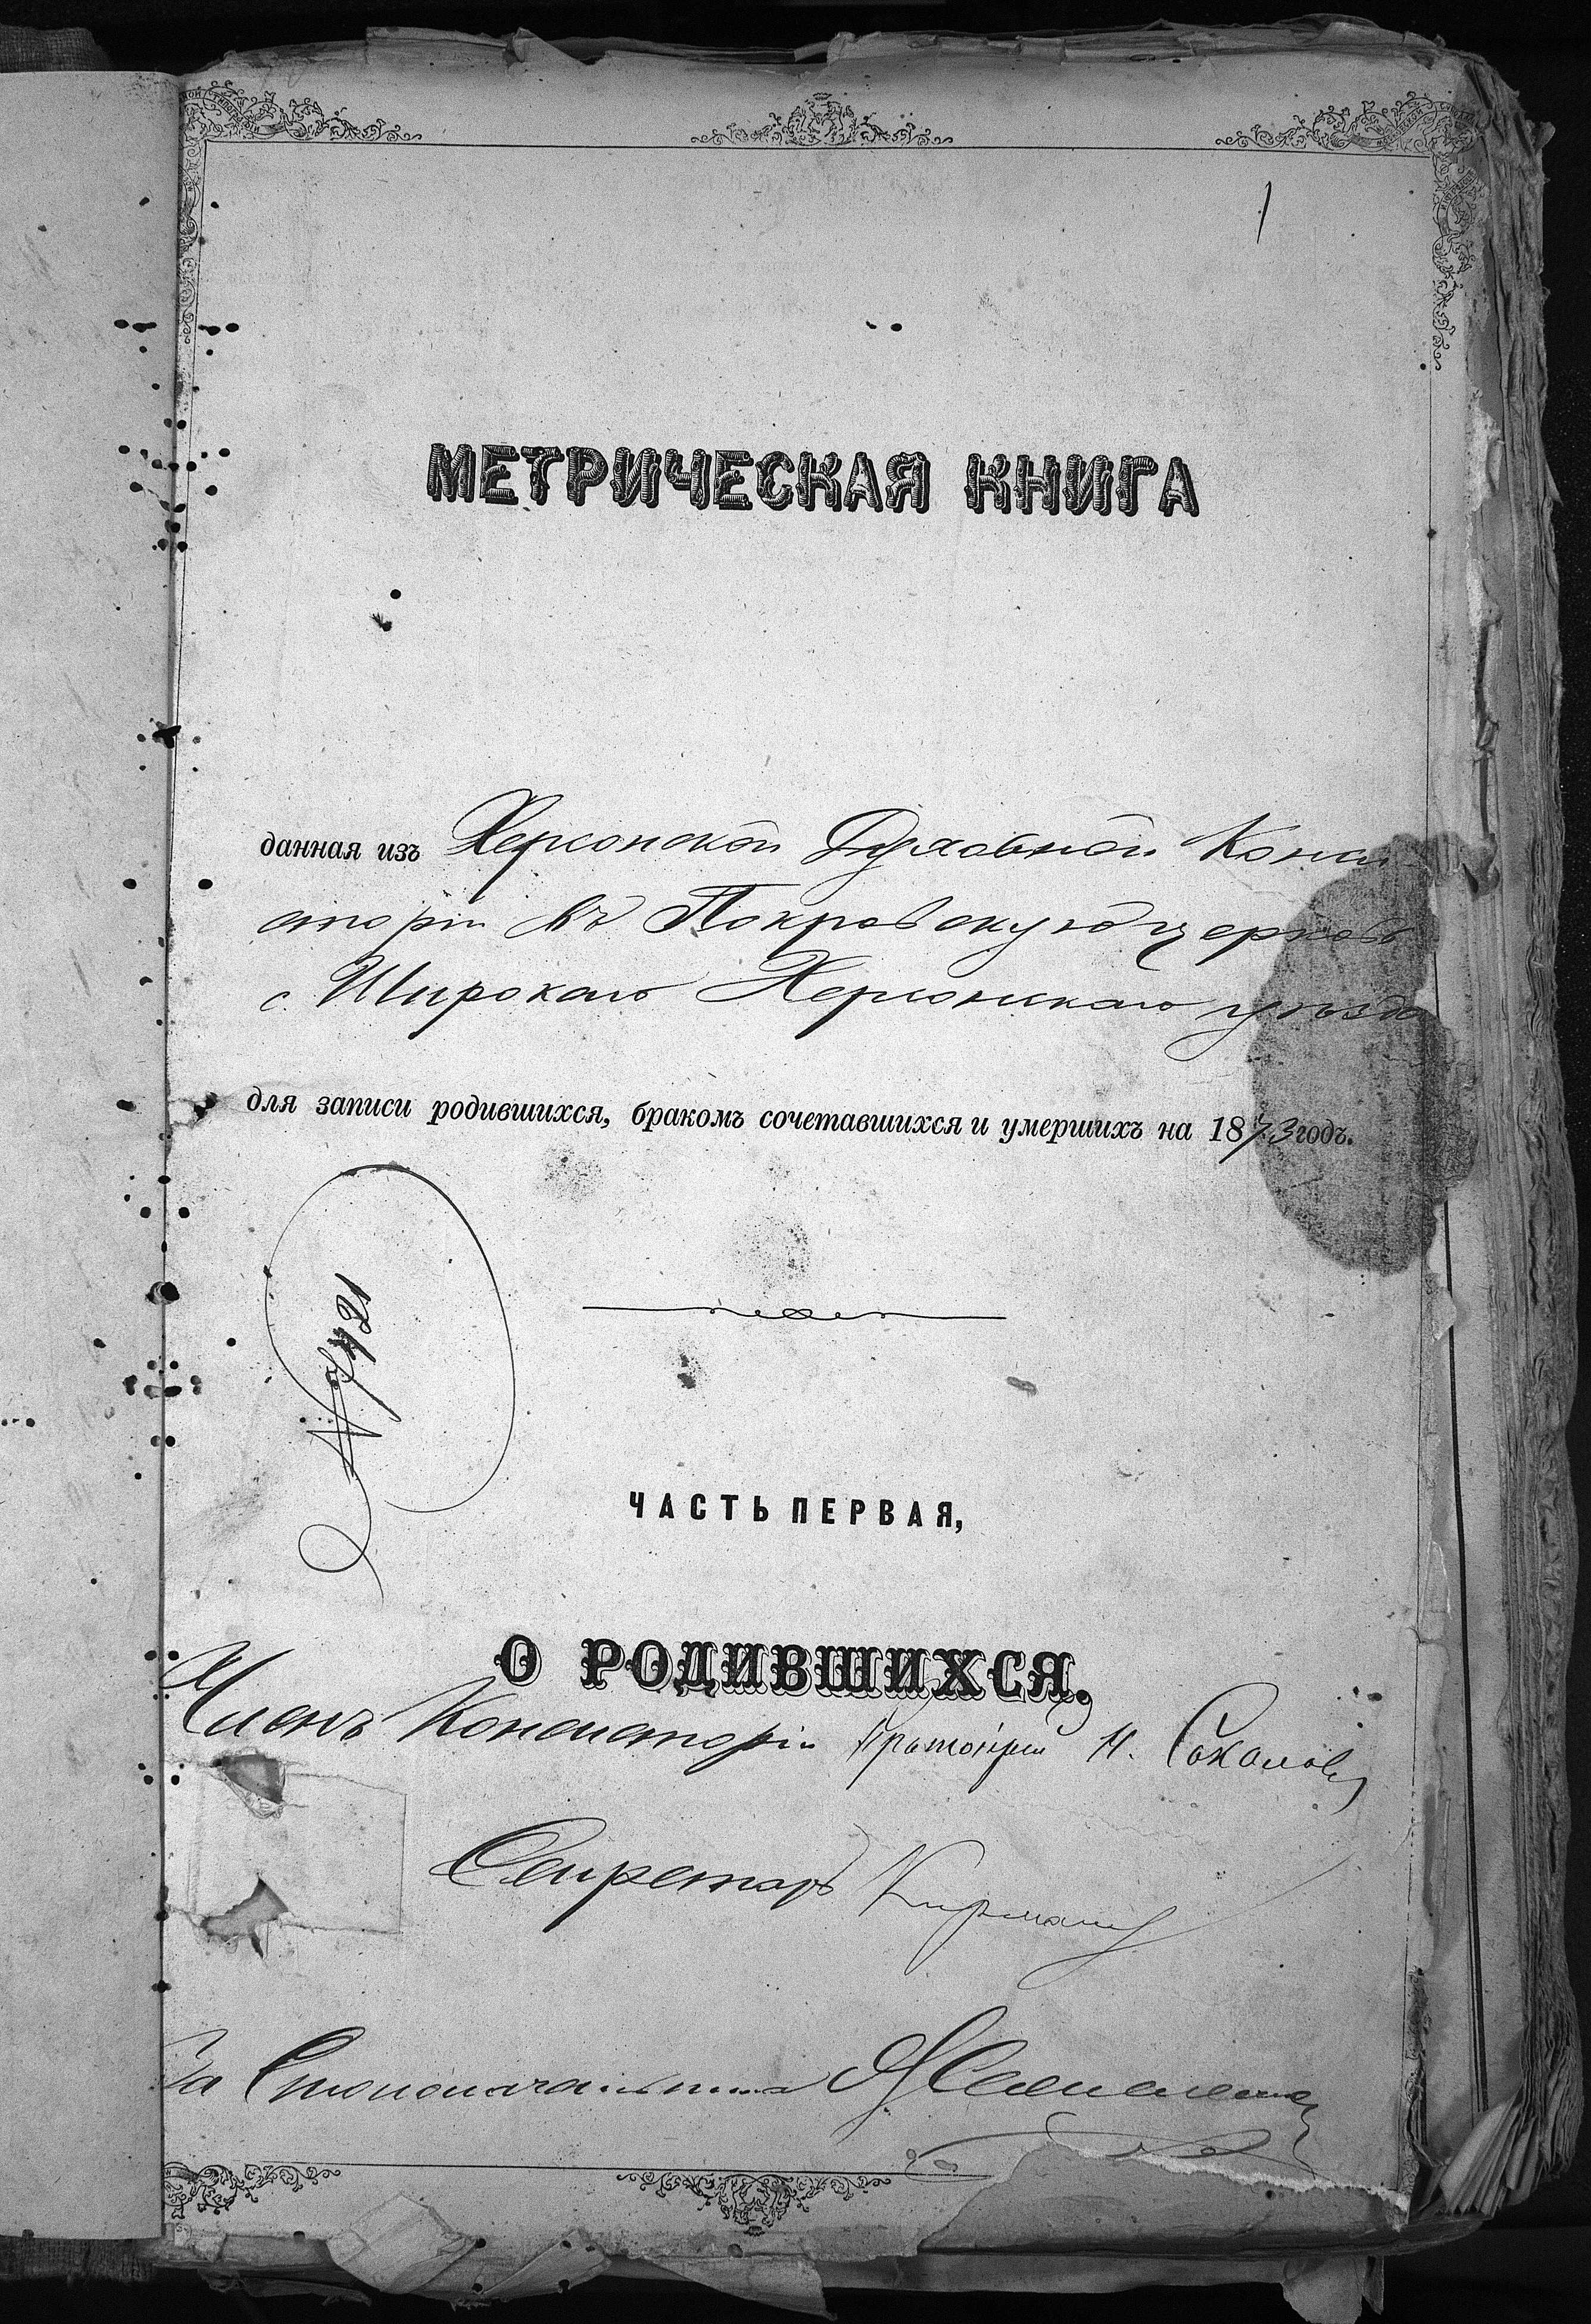 1
МЕТРИЧЕСКАЯ КНИГА
данная изъ Херсонской Духовной Конси
сторіи въ Покровскую церковь
с. Широкаго Херсонскаго уѣзда
для записи родившихся, бракомъ сочетавшихся и умершихъ на 1873 годъ.
№ 421
ЧАСТЬ ПЕРВАЯ,
О РОДИВШИХСЯ.
Членъ Консисторіи Протоіерей Н. Соколовъ
Секретарь
За Столоначальника